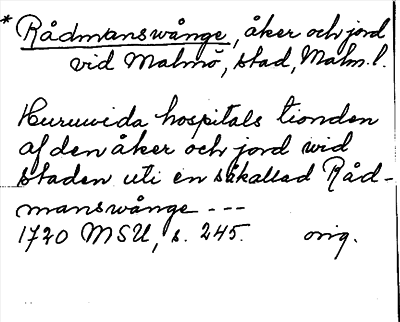 * Rådmanswånge, åker och jord
vid Malmö, stad, Malm. l.
Huruwida hospitals tionden
af den åker och jord wid
staden uti en såkallad Råd-
manswånge ---
1720 MSU, s. 245. orig.